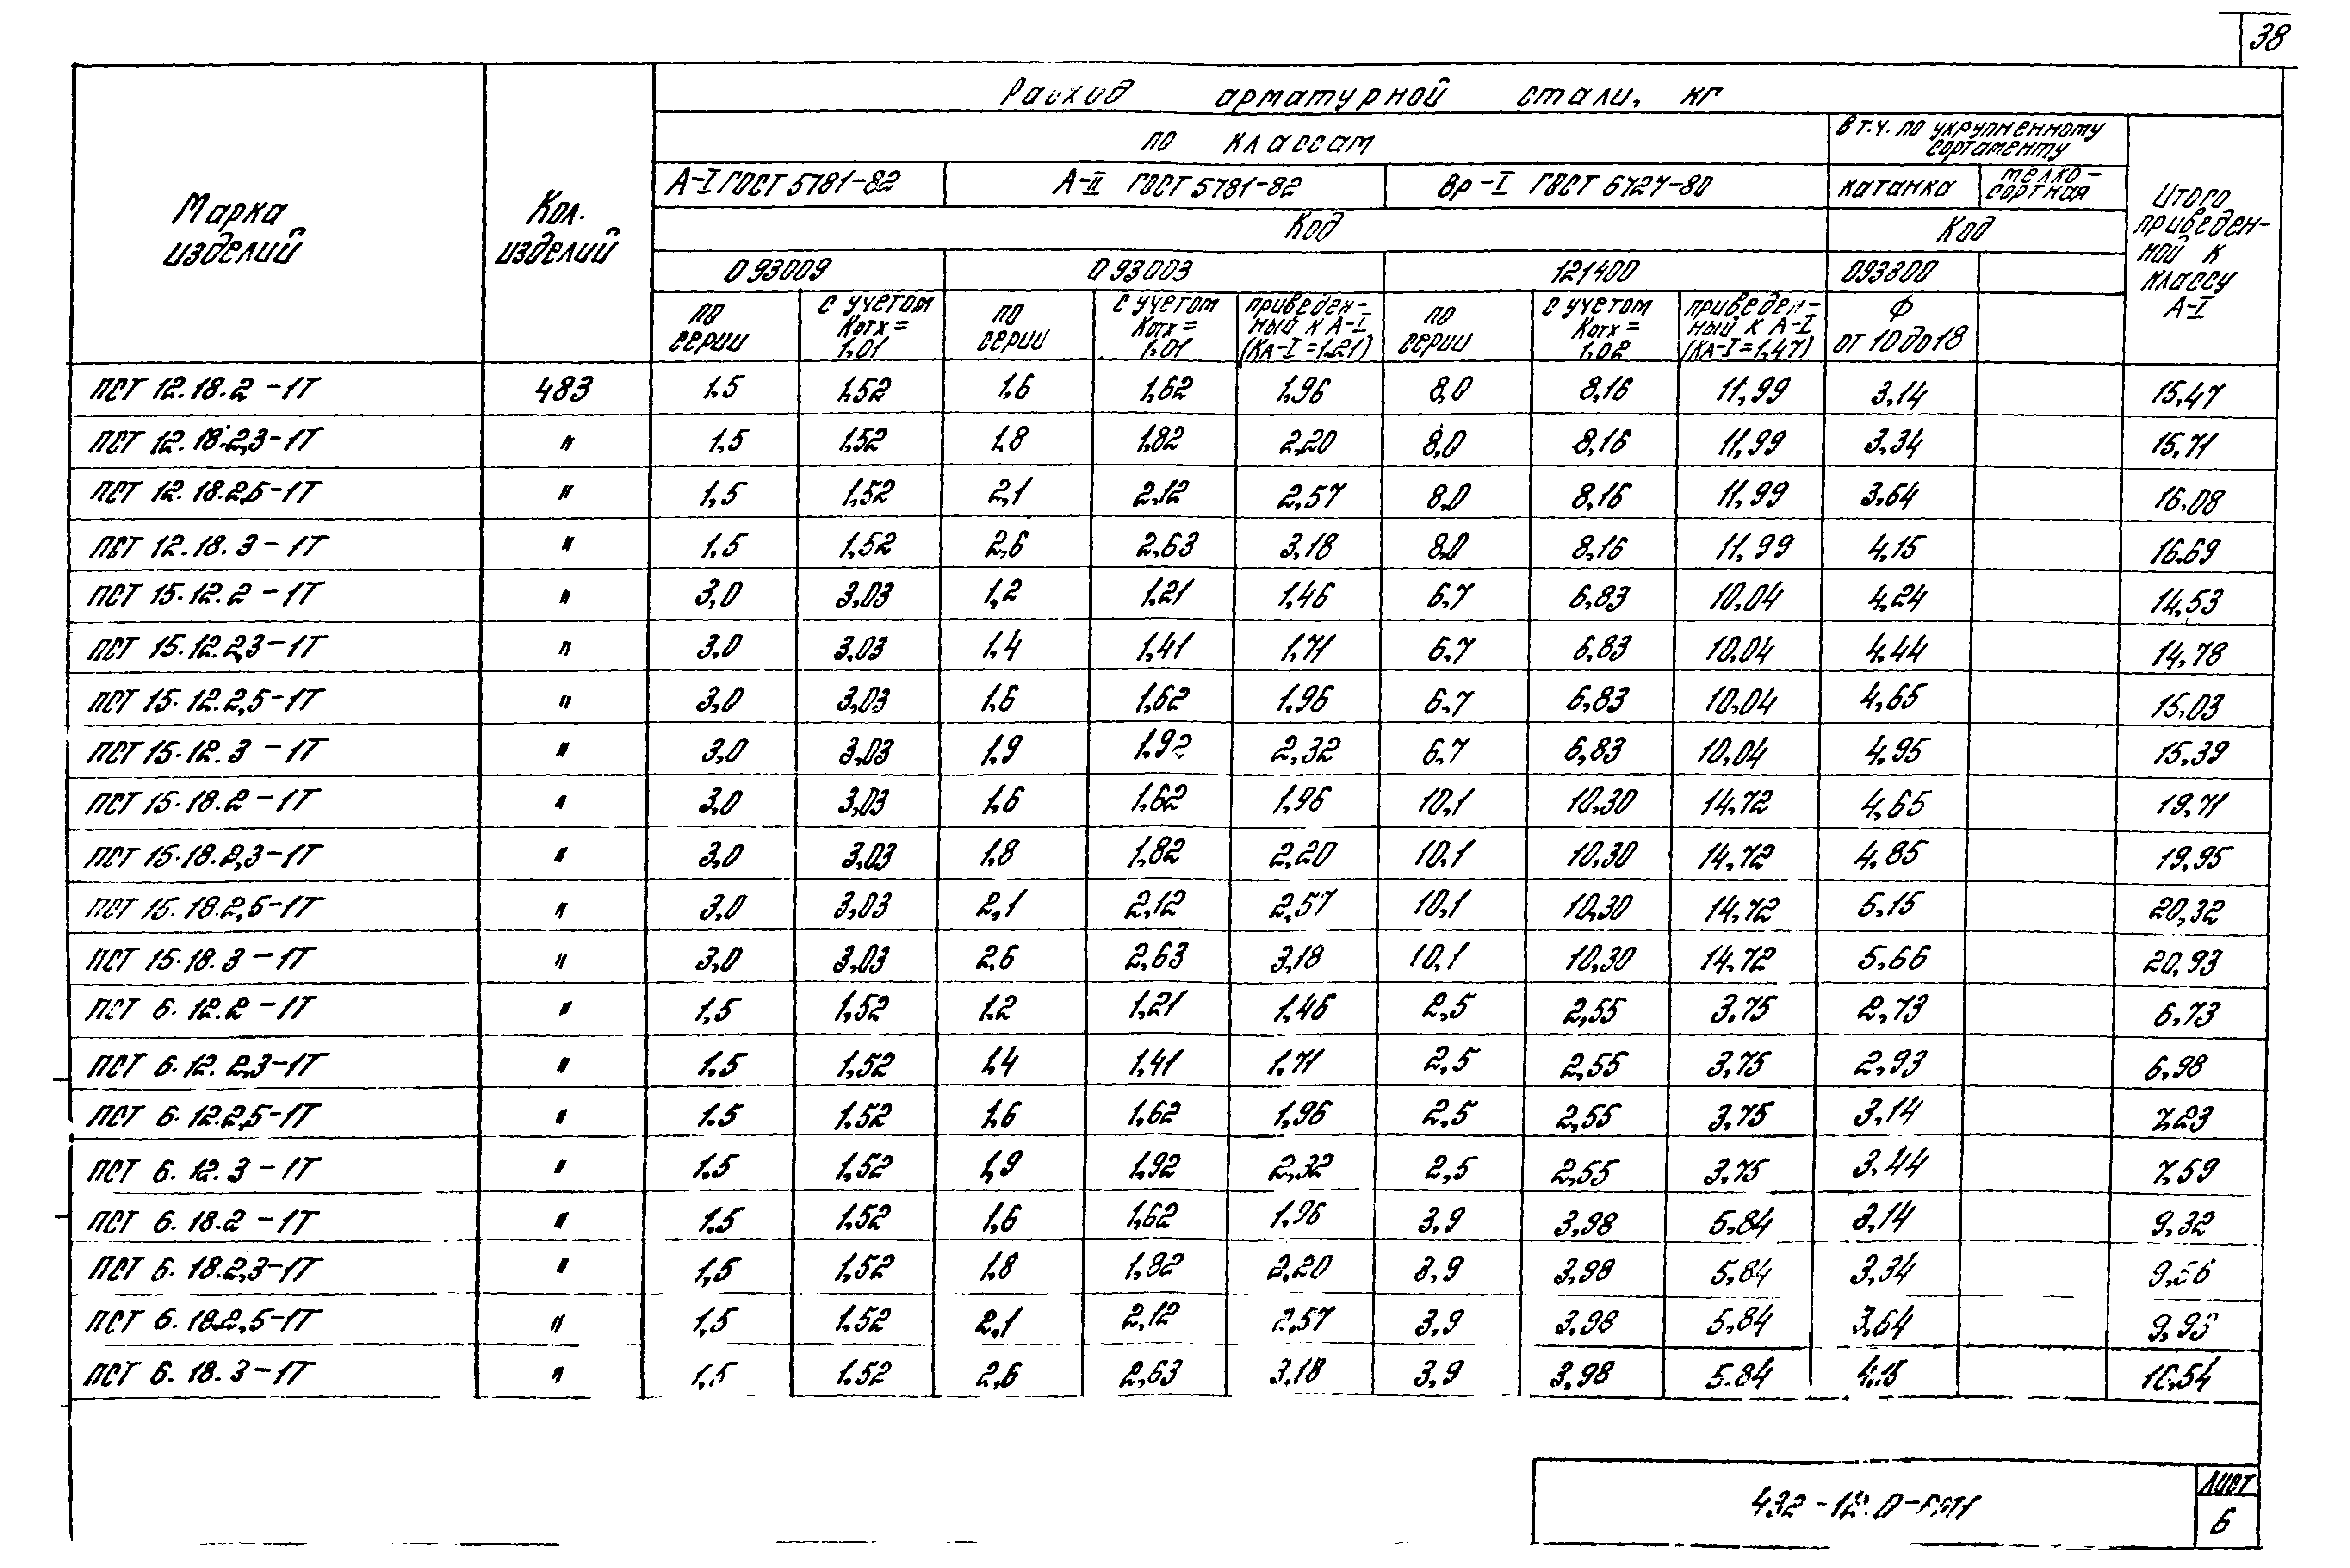 38
Расход арматурной стали, кг
по классам
В т.ч. по укрупненному сортаменту
А-I ГОСТ 5781-82 А-II ГОСТ 5781-82 Вр-I ГОСТ 6727-80 катанка мелкосортная
Марка изделий Кол. изделий Код Код Итого приведенной к классу А-I
093009 093003 121400 093300
по серии с учетом Kотх = 1.01 по серии с учетом Kотх = 1.01 приведенный к А-I (КА-I = 1,21) по серии с учетом Kотх = 1.02 приведенный к А-I (КА-I = 1,47) Ф от 10 до 18
ПСТ 12.18.2-1Т 483 1.5 1.52 1.6 1.62 1.96 8,0 8,16 11,99 3,14 15,47
ПСТ 12.18.2,3-1Т " 1,5 1,52 1,8 1,82 2,20 8,0 8,16 11,99 3,34 15,71
ПСТ 12.18.2,5-1Т " 1,5 1,52 2,1 2,12 2,57 8,0 8,16 11,99 3,64 16,08
ПСТ 12.18.3-1Т " 1.5 1,52 2,6 2,63 3,18 8,0 8,16 11,99 4,15 16.69
ПСТ 15.12.2-1Т " 3,0 3,03 1,2 1,21 1,46 6.7 6,83 10,04 4,24 14,53
ПСТ 15.12.2,3-1Т " 3.0 3.03 1,4 1,41 1,71 6.7 6,83 10,04 4,44 14,78
ПСТ 15.12.2,5-1Т " 3,0 3,03 1,6 1,62 1,96 6.7 6,83 10,04 4,65 15,03
ПСТ 15.12.3-1Т " 3,0 3,03 1,9 1.92 2,32 6.7 6,83 10,04 4,95 15,39
ПСТ 15.18.2-1Т " 3,0 3,03 1,6 1,62 1,96 10,1 10,30 14,72 4,65 19,71
ПСТ 15.18.2,3-1Т " 3,0 3,03 1,8 1,82 2,20 10,1 10,30 14,72 4,85 19,95
ПСТ 15.18.2,5-1Т " 3,0 3,03 2,1 2,12 2,57 10,1 10,30 14,72 5,15 20,32
ПСТ 15.18.3-1Т " 3,0 3,03 2,6 2,63 3,18 10,1 10,30 14,72 5,66 20,93
ПСТ 6.12.2-1Т " 1,5 1,52 1,2 1,21 1,46 2,5 2,55 3,75 2,73 6,73
ПСТ 6.12.2,3-1Т " 1.5 1,52 1,4 1,41 1,71 2,5 2,55 3,75 2,93 6,98
ПСТ 6.12.2,5-1Т " 1.5 1.52 1,6 1,62 1,96 2,5 2,55 3,75 3,14 7,23
ПСТ 6.12.3-1Т " 1.5 1,52 1,9 1,92 2,32 2,5 2,55 3,75 3,44 7,59
ПСТ 6.18.2-1Т " 1.5 1,52 1,6 1,62 1,96 3,9 3,98 5,84 3,14 9,32
ПСТ 6.18.2,3-1Т " 1,5 1,52 1,8 1,82 2,20 3,9 3,98 5,84 3,34 9,56
ПСТ 6.18.2,5-1Т " 1,5 1.52 2,1 2,12 2,57 3,9 3.98 5,84 3,64 9,93
ПСТ 6.18.3-1Т " 1,5 1.52 2,6 2,63 3,18 3,9 3,98 5.84 4,15 10,54
Лист
6